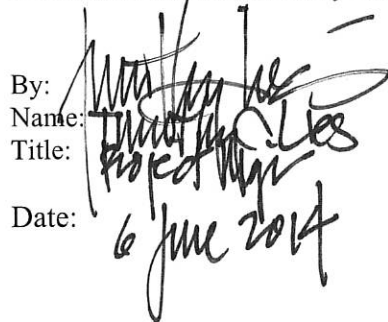 By:
Name: Timothy C. Lies
Title: Project Mgr
Date: 6 June 2014